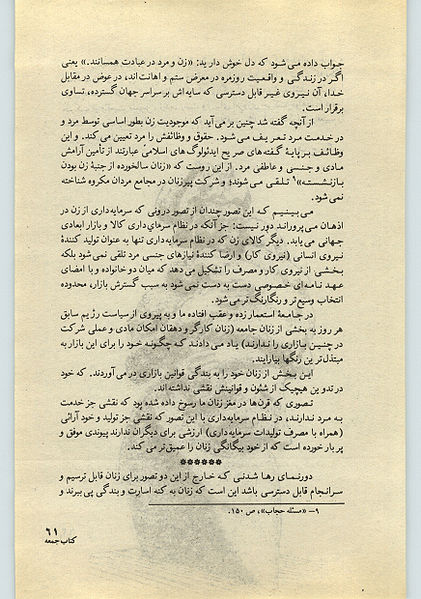 جواب داده می‌شود که دل خوش دارید: «زن و مرد در عبادت همسانند.» یعنی
اگر در زندگی و واقعیت روزمره در معرض ستم و اهانت‌اند، در عوض در مقابل
خدا، آن نیروی غیر قابل دسترسی که سایه‌اش بر سراسر جهان گسترده، تساوی
برقرار است.
از آنچه گفته شد چنین بر می‌آید که موجودیت زن بطور اساسی توسط مرد و
در خدمت مرد تعریف می‌شود. حقوق و وظائفش را مرد تعیین می‌کند. و این
وظائف بر پایهٔ گفته‌های صریح ایدئولوگ‌های اسلامی عبارتند از تأمین آرامش
مادی و جنسی و عاطفی مرد. از این روست که «زنان سالخورده از جنبهٔ زن بودن
بازنشسته»۹ تلقی می‌شوند و شرکت پیرزنان در مجامع مردان مکروه شناخته
نمی‌شود.
می‌بینیم که این تصور چندان از تصور درونی که سرمایه‌داری از زن در
اذهان می‌پروراند دور نیست: جز آنکه در نظام سرمای‌داری کالا و بازار ابعادی
جهانی می‌یابد. دیگر کالای زن که در نظام سرمایه‌داری تنها به عنوان تولید کنندهٔ
نیروی انسانی (نیروی کار) و ارضا کنندهٔ نیازهای جنسی مرد تلقی نمی‌شود بلکه
بخشی از نیروی کار و مصرف را تشکیل می‌دهد که میان دو خانواده و با امضای
عهدنامه‌ای خصوصی دست به دست نمی‌شود به سبب گسترش بازار، محدوده
انتخاب وسیع‌تر و رنگارنگ‌تر می‌شود.
در جامعهٔ استعمارزده و عقب افتاده ما و به پیروی از سیاست رژیم سابق
هر روز به بخشی از زنان جامعه (زنان کارگر و دهقان امکان مادی و عملی شرکت
در چنین بازاری را ندارند) یاد می‌دادند که چگونه خود را برای این بازار به
مبتذل‌ترین رنگها بیارایند.
این بخش از زنان خود را به بندگی قوانین بازاری در می‌آوردند. که خود
در تدوین هیچیک از شئون و قوانینش نقشی نداشته‌اند.
تصوری که قرن‌ها در مغز زنان ما رسوخ داده شده بود که نقشی جز خدمت
به مرد ندارند، در نظام سرمایه‌داری با این تصور که نقشی جز تولید و خود آرائی
(همراه با مصرف تولیدات سرمایه‌داری) ارزشی برای دیگران ندارند پیوندی موفق و
پربار خورده است که از خود بیگانگی زنان را عمیق‌تر می‌کند.
******
دورنمای رها شدنی که خارج از این دو تصور برای زنان قابل ترسیم و
سرانجام قابل دسترسی باشد این است که زنان به کنه اسارت و بندگی پی ببرند و
۹– «مسئله حجاب»، ص ۱۵۰.
۶۱
کتاب جمعه